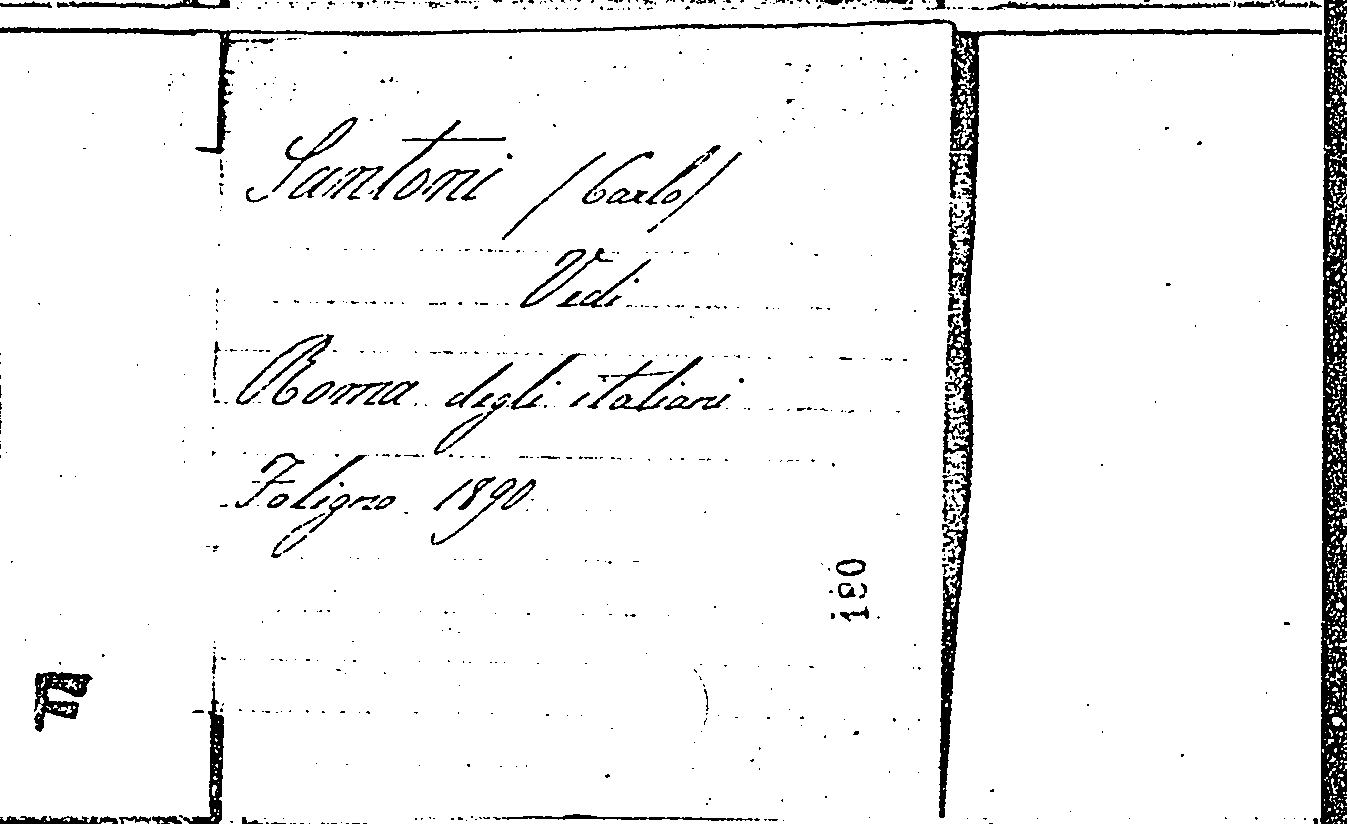 Santoni (Carlo)
Vedi
Roma degli italiani
Foligno 1890
190